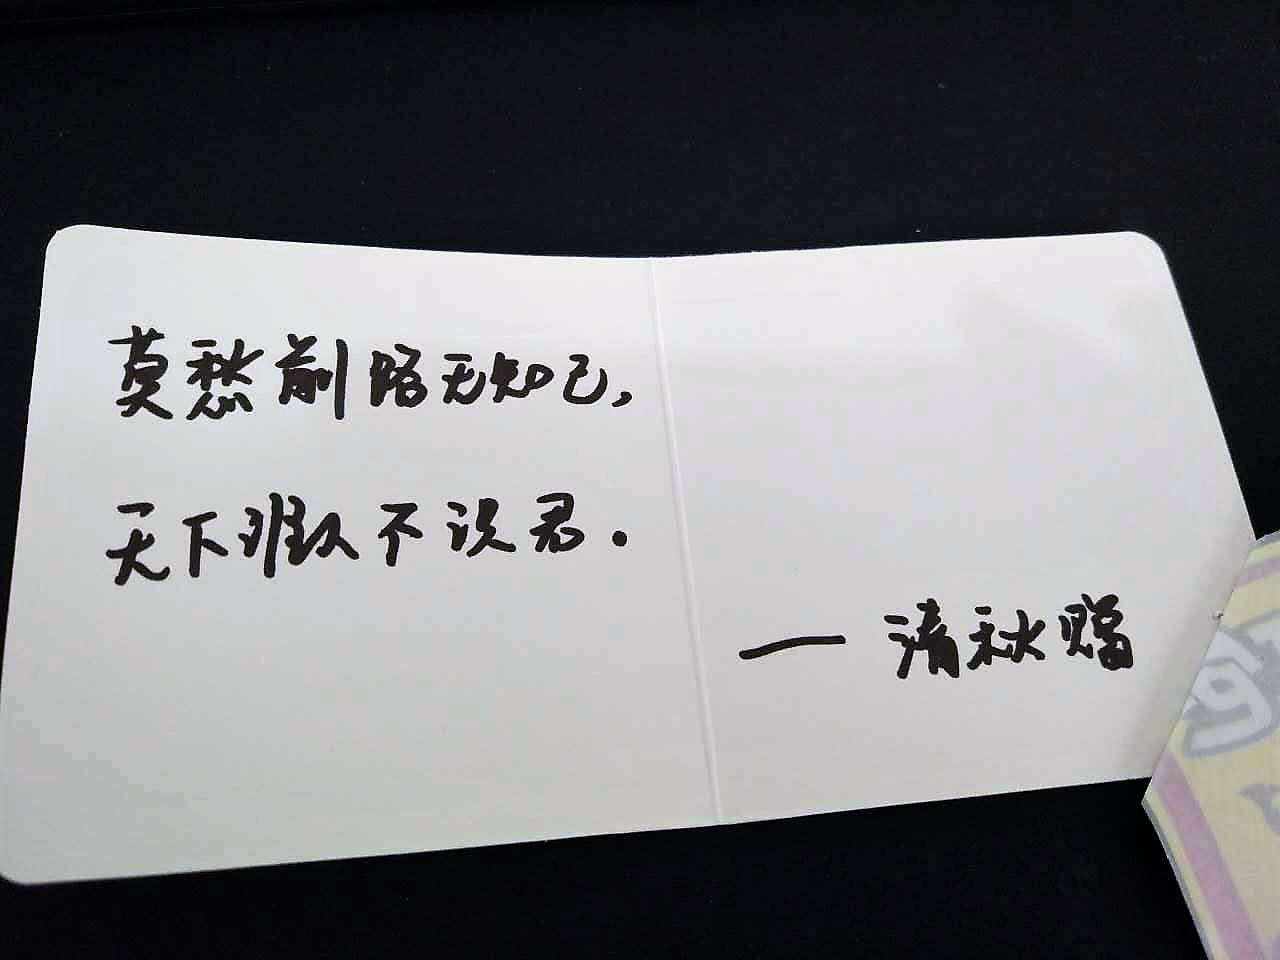 莫愁前路无知己,
天下谁人不识君.
— 清秋赠